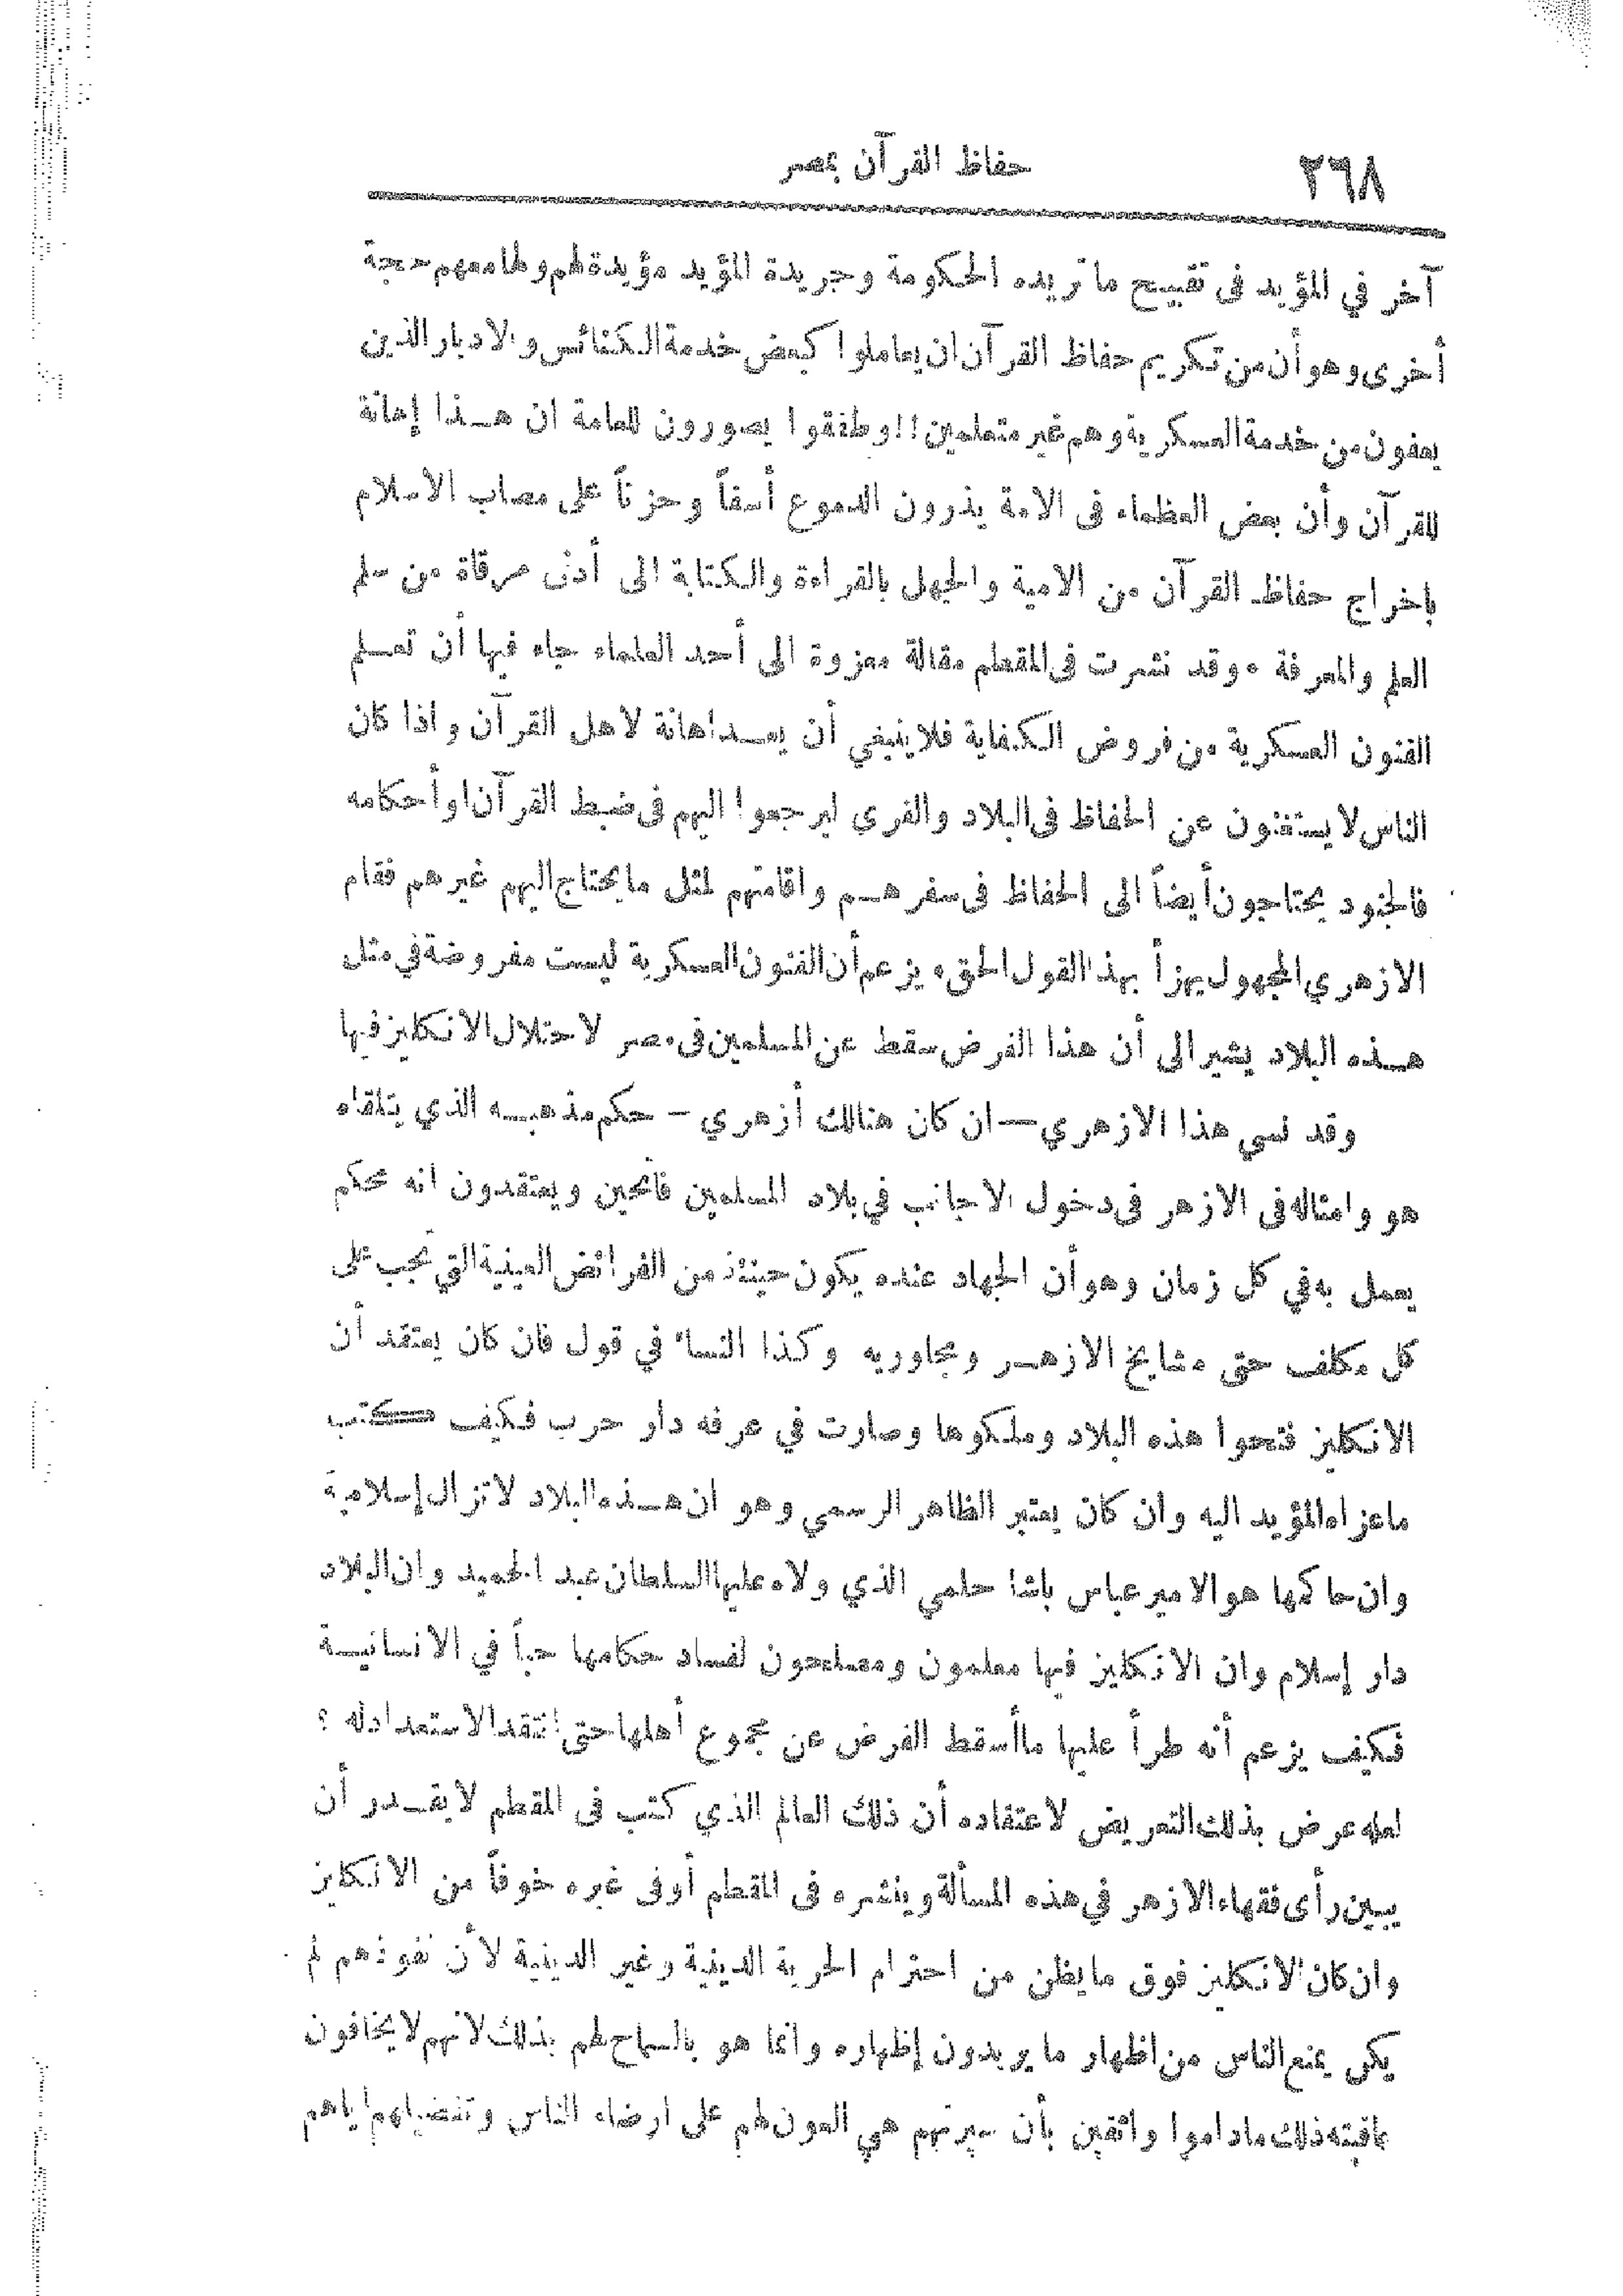 ٢٦٨ حفاظ القرآن بمصر
آخر في المؤيد فى تقبيح ما تريده الحكومة وجريدة المؤيد مؤيدة لهم ولها معهم حجة
أخرى وهو أن من تكريم حفاظ القرآن ان يعاملوا كبعض خدمة الكنائس والاديار الذين
يعفون من خدمة العسكرية وهم غير متعلمين!! وطفقوا يصورون للعامة ان هذا إهانة
للقرآن وأن بعض العظماء فى الامة يذرون الدموع أسفاً وحزناً على مصاب الاسلام
بإخراج حفاظ القرآن من الامية والجهل بالقراءة والكتابة الى أدنى مرقاة من سلم
العلم والمعرفة . وقد نشرت فى المقطم مقالة معزوة الى أحد العلماء جاء فيها أن تعلم
الفنون العسكرية من فروض الكفاية فلا ينبغي أن يعد اهانة لاهل القرآن واذا كان
الناس لا يستغنون عن الحفاظ فى البلاد والقرى ليرجعوا اليهم فى ضبط القرآن او أحكامه
فالجنود يحتاجون أيضاً الى الحفاظ فى سفرهم واقامتهم لمثل ما يحتاج اليهم غيرهم فقام
الازهري المجهول يهزأ بهذا القول الحق . يزعم أن الفنون العسكرية ليست مفروضة في مثل
هذه البلاد يشير الى أن هذا الفرض سقط عن المسلمين فى مصر لاحتلال الانكليز فيها
وقد نسي هذا الازهري — ان كان هنالك أزهري – حكم مذهبه الذي يتلقاه
هو وامثاله فى الازهر فى دخول الاجانب في بلاد المسلمين فاتحين ويعتقدون انه محكم
يعمل به في كل زمان وهو أن الجهاد عنده يكون حينئذ من الفرائض العينية التي تجب على
كل مكلف حتى مشايخ الازهر ومجاوريه وكذا النساء في قول فان كان يعتقد أن
الانكليز فتحوا هذه البلاد وملكوها وصارت في عرفه دار حرب فكيف كتب
ماعزاه المؤيد اليه وان كان يعتبر الظاهر الرسمي وهو ان هذه البلاد لا تزال إسلامية
وان حاكمها هو الامير عباس باشا حلمي الذي ولاه عليها السلطان عبد الحميد وان البلاد
دار إسلام وان الانكليز فيها معلمون ومصلحون لفساد حكامها حباً في الانسانية
فكيف يزعم أنه طرأ عليها ما أسقط الفرض عن مجموع أهلها حتى انتقد الاستعداد له ؟
لعله عرض بذلك التعريض لاعتقاده أن ذلك العالم الذي كتب فى المقطم لا يقدر أن
يبين رأى فقهاء الازهر في هذه المسألة وينشره فى المقطم أو فى غيره خوفاً من الانكليز
وان كان الانكليز فوق ما يظن من احترام الحرية الدينية وغير الدينية لأن نفوذهم لم
يكن يمنع الناس من اظهار ما يريدون إظهاره وانما هو بالسماح لهم بذلك لانهم لا يخافون
عاقبته ذلك ماداموا واثقين بأن سيرتهم هي العون لهم على ارضاء الناس وتفضيلهم اياهم